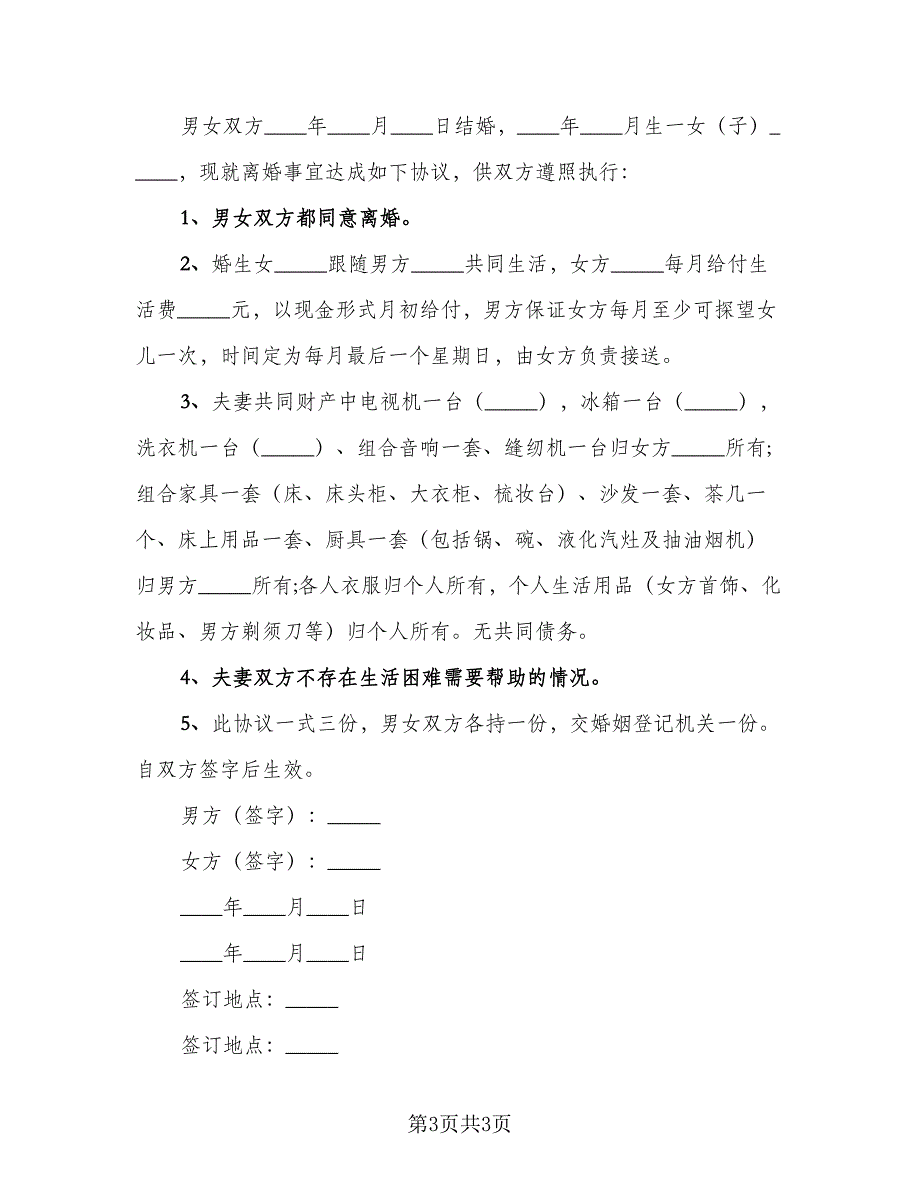 男女双方____年____月____日结婚，____年____月生一女（子）_
____，现就离婚事宜达成如下协议，供双方遵照执行：
1、男女双方都同意离婚。
2、婚生女_____跟随男方_____共同生活，女方_____每月给付生
活费_____元，以现金形式月初给付，男方保证女方每月至少可探望女
儿一次，时间定为每月最后一个星期日，由女方负责接送。
3、夫妻共同财产中电视机一台（_____），冰箱一台（_____），
洗衣机一台（_____）、组合音响一套、缝纫机一台归女方_____所有;
组合家具一套（床、床头柜、大衣柜、梳妆台）、沙发一套、茶几一
个、床上用品一套、厨具一套（包括锅、碗、液化汽灶及抽油烟机）
归男方_____所有;各人衣服归个人所有，个人生活用品（女方首饰、化
妆品、男方剃须刀等）归个人所有。无共同债务。
4、夫妻双方不存在生活困难需要帮助的情况。
5、此协议一式三份，男女双方各持一份，交婚姻登记机关一份。
自双方签字后生效。
男方（签字）：_____
女方（签字）：_____
____年____月____日
____年____月____日
签订地点：_____
签订地点：_____
第3页共3页